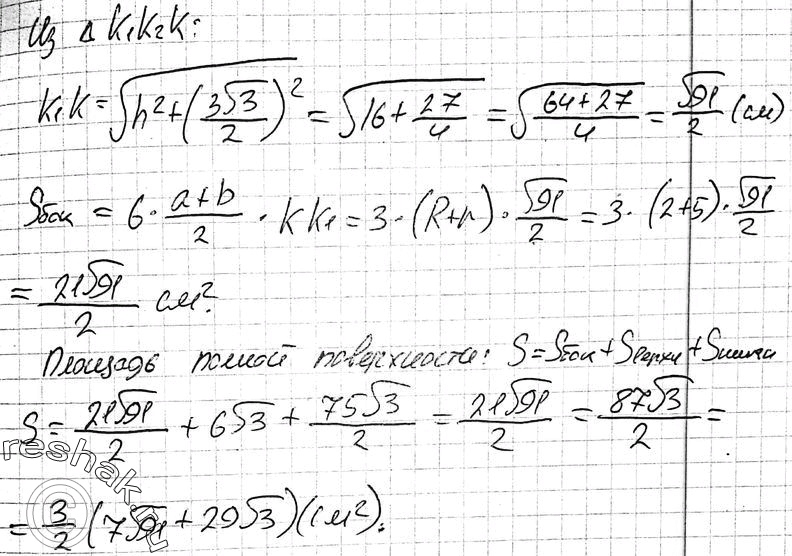 Из Δ K₁K₂K:
K₁K = √(h² + (3√3/2)²) = √(16 + 27/4) = √((64+27)/4) = √91/2 (см)
Sбок = 6 · (a+b)/2 · KK₁ = 3 · (R+r) · √91/2 = 3 · (2+5) · √91/2
= 21√91/2 см².
Площадь полной поверхности: S = Sбок + Sверхн + Sнижн
S = 21√91/2 + 6√3 + 75√3/2 = 21√91/2 = 87√3/2 =
= 3/2 (7√91 + 29√3) (см²).
reshak.ru